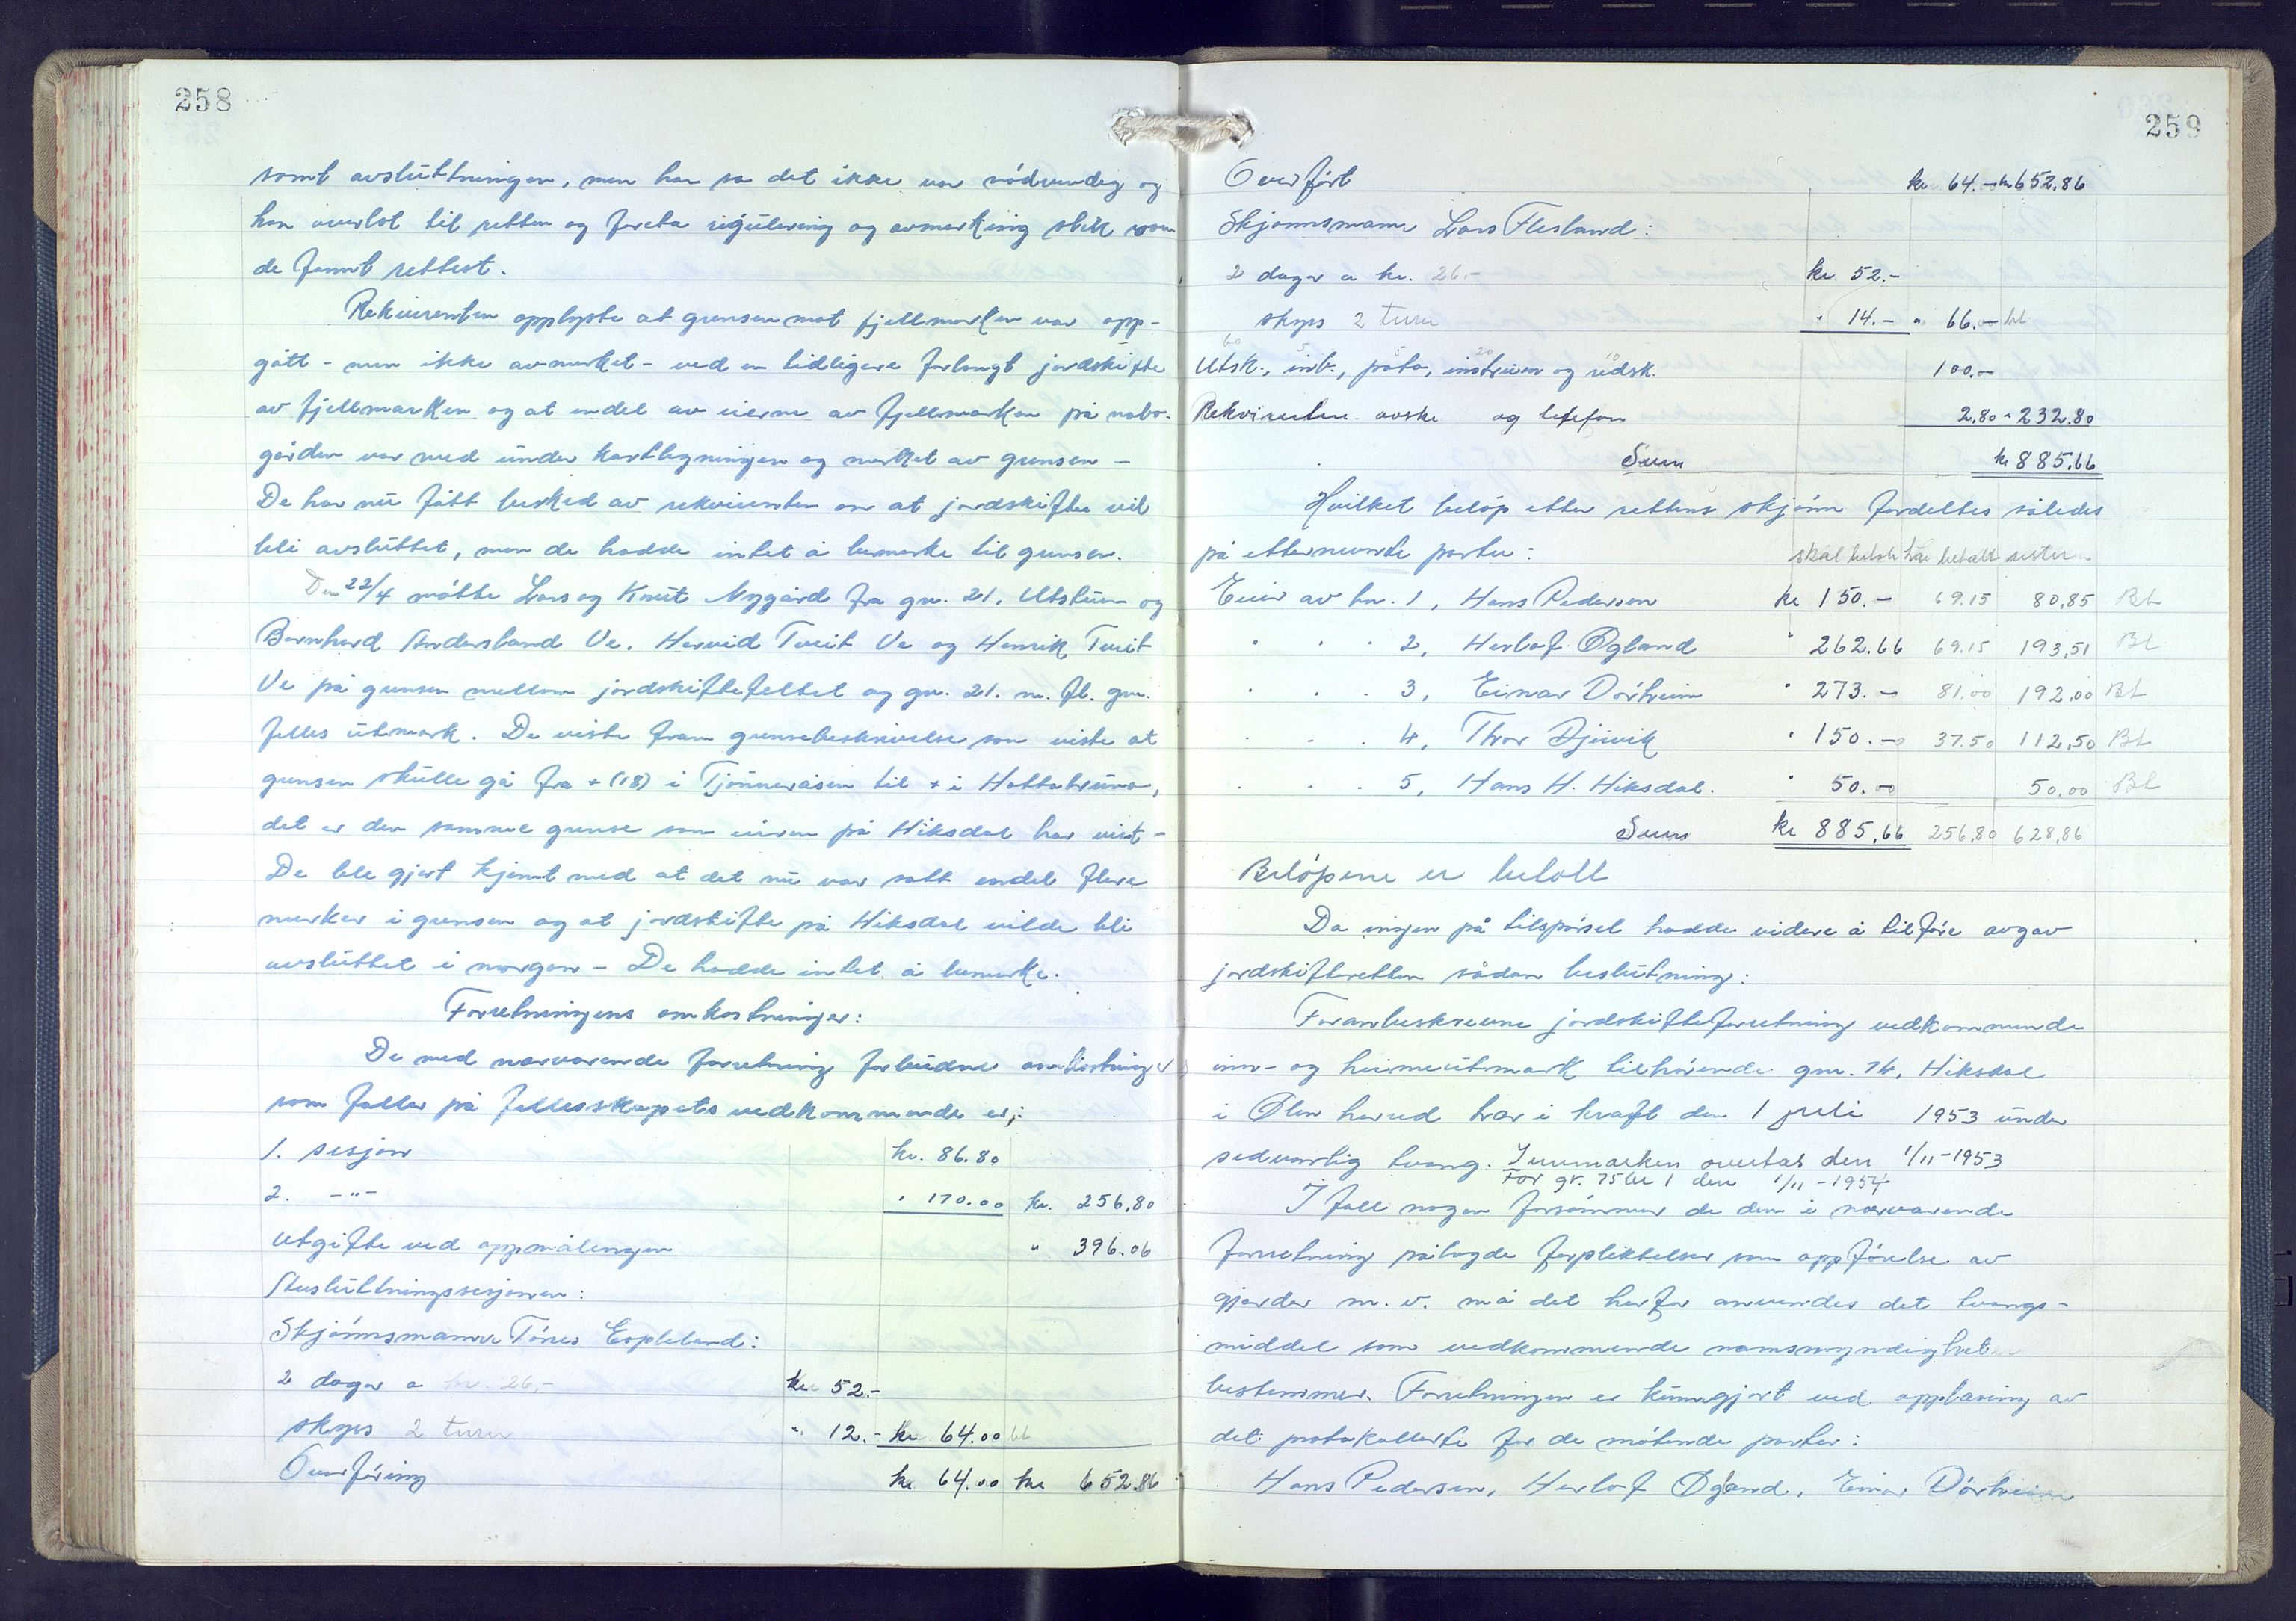 258
samt avsluttningen, men han sa det ikke var nödvendig og
han overlot til retten og foreta regulering og avmerking slik som
de fannt rettest.
Rekvirenten opplyste at grensen mot fjellmarken var opp-
gått - men ikke avmerket - ved en tidligere forlangt jordskifte
av fjellmarken og at endel av eierne av fjellmarken på nabo-
gården var med under kartlegningen og merket av grensen -
De har nu fått besked av rekvirenten om at jordskiftet vil
bli avsluttet, men de hadde intet å bemerke til grensen.
Den 22/4 mötte Lars og Knut Nygård fra gnr. 21, Utstum og
Bernhard Andersland Ve. Hervid Tveit Ve og Henrik Tveit
Ve på grensen mellom jordskiftefeltet og gnr. 21. m. fl. gnr.
felles utmark. De viste fram grensebeskrivelse som viste at
grensen skulle gå fra + (18) i Tjönneråsen til + i Hattabruna,
det er den samme grense som eieren på Hiksdal har vist -
De ble gjort kjennt med at det nu var satt endel flere
merker i grensen og at jordskifte på Hiksdal vilde bli
avsluttet i morgen - De hadde intet å bemerke.
Forretningens omkostninger:
De med nærværende forretning forbudne omkostninger
som faller på fellesskapets vedkommende er;
1. sesjon kr. 86.80
2. -"- " 170.00 kr. 256,80
Utgifte ved oppmålingen " 396.06
Avsluttningssesjonen:
Skjönnsmann Tönes Eopleland:
2 dager a kr. 26,- kr 52.-
skyss 2 turer " 12.- kr 64.00 bt
Overföring kr 64.00 kr 652.86
259
Overfört kr 64.- kr 652,86
Skjönnsmann Lars Flesland:
2 dager a kr. 26.- kr. 52.-
skyss 2 turer " 14.- " 66.- bt
60 5 5 20 10
Utsk., inb., porto, instrum og redsk. 100.-
Rekvirenten avske og telefon 2,80 " 232.80
Sum kr 885,66
Hvilket belöp etter rettens skjönn fordeltes således
på etternevnte parter: skal betale har betalt resterer
Eier av bnr. 1, Hans Pedersen kr 150.- 69.15 80,85 Bt
" " " 2, Herlof Ögland " 262.66 69.15 193,51 Bt
" " " 3, Einar Dörheim " 273.- 81.00 192,00 Bt
" " " 4, Thor Djuvik " 150.- 37.50 112,50 Bt
" " " 5, Hans H. Hiksdal. " 50.00 50.00 Bt
Sum kr 885,66 256,80 628,86
Belöpene er betalt
Da ingen på tilspörsel hadde videre å tilföre avgav
jordskifteretten sådan beslutning:
Foranbeskrevne jordskifteforretning vedkommende
inn- og heimeutmark tilhörende gnr. 74, Hiksdal
i Ölen herred trær i kraft den 1 juli 1953 under
sedvanlig tvang. Innmarken overtas den 1/11-1953
For gr. 75 br 1 den 1/11 - 1954
I fall nogen forsömmer de dem i nærværende
forretning pålagde forpliktelser som oppförelse av
gjerder m. v. må det herfor anvendes det tvangs-
middel som vedkommende namsmyndighet
bestemmer. Forretningen er kunngjort ved opplæsing av
det protokollerte for de mötende parter:
Hans Pedersen, Herlof Ögland, Einar Dörheim